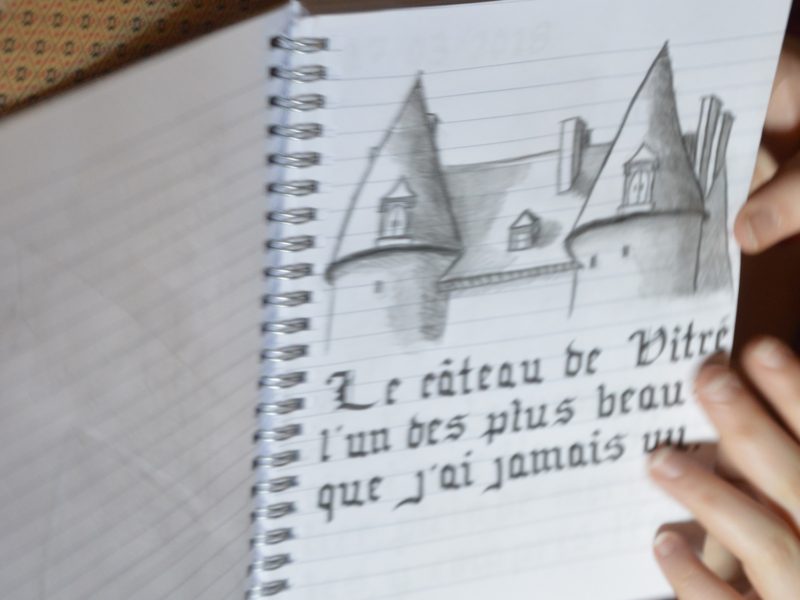 Le câteau de Vitré
l'un des plus beau
que j'ai jamais vu.